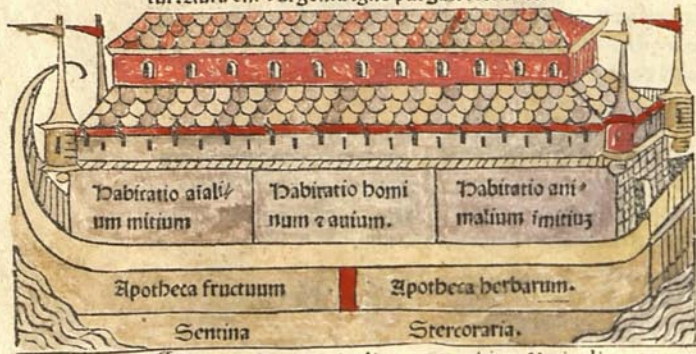 Habitatio aīali⸗
um mitium
Habitatio homi
num ⁊ auium.
Habitatio ani⸗
malium īmitiuꝫ
Apotheca fructuum
Apotheca herbarum.
Sentina
Stercoraria.